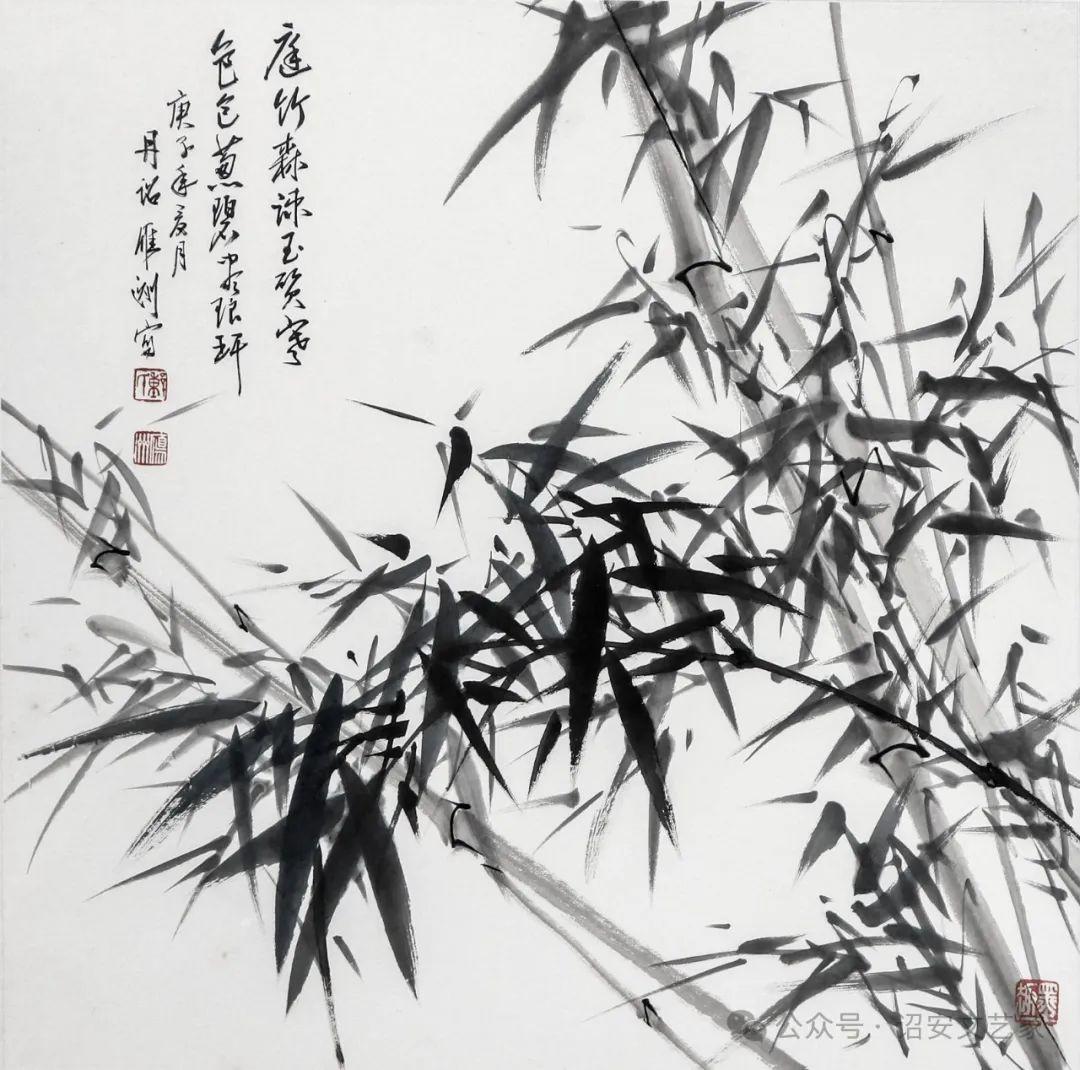 庭竹森疎玉质寒
色包葱碧尽琅玕
庚子年夏月
丹诏雁洲写
公众号·诏安文艺家